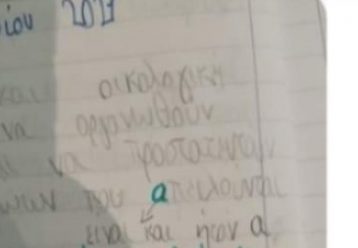 ίου 2021
και οικολογική
να οργανωθούν
να προστατευτούν
που απειλούνται
είναι και ήταν α